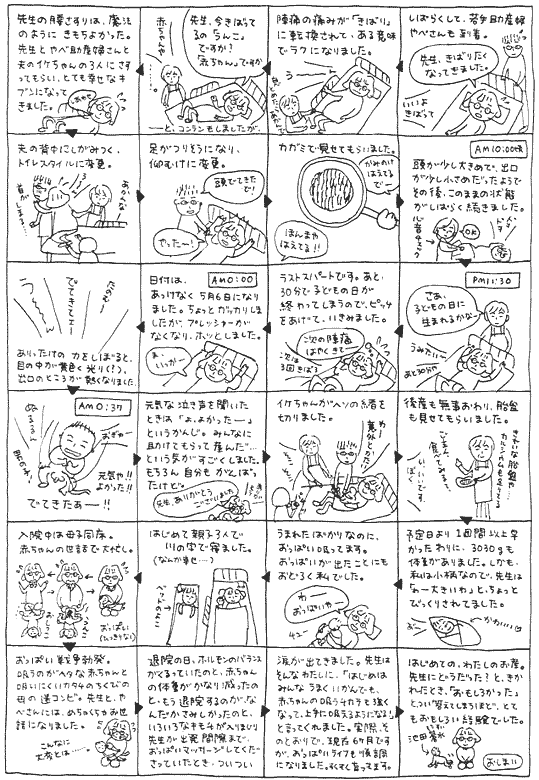 しばらくして、若手助産婦
やべさんも到着。
先生、きばりたく
なってきました。
いいよ
きばって
陣痛の痛みが「きばり」
に転換されて、ある意味
でラクになりました。
うーん
先生、今きばって
るの「うんこ」
ですか?
「赤ちゃん」ですか
赤ちゃん
―と、コンランもしましたが、
先生の腰さすりは、魔法
のように きもちよかった。
先生とやべ助産婦さんと
夫のイケちゃんの3人にさす
ってもらい、とても幸せなキ
ブンになって
きました。
しあわせ
夫の背中にしがみつく、
トイレスタイルに変更。
首がしまる…
足がつりそうになり、
仰むけに変更。
頭でてきたで!
やったー!
カガミで見せてもらいました。
かみのけ
はえてるでー
ほんまや
はえてる!!
AM10:00頃
頭が少し大きめで、出口
が少し小さめだったようで
その後、このままの状態
がしばらく続きました。
OK
心音チェック
PM11:30
さあ、
子どもの日に
生まれるかなー
うみたいー
あと30分や
ラストスパートです。あと、
30分で子どもの日が
終わってしまうので、ピッチ
をあげて、いきみました。
次の陣痛
はやくきてー
次は
3回きばろう
AM0:00
日付は、
あっけなく 5月6日になり
ました。ちょっとガッカリしま
したが、プレッシャーが
なくなり、ホッとしました。
ま、
いっかー
でてきてェー
うーーん
ありったけの 力をしぼると、
目の中が黄色く光り(!)、
出口のところが熱くなりました
AM0:37
ぬるるる
おぎゃー
元気や!!
よかった!!
でてきたぁー!!
元気な泣き声を聞いた
ときは「よ、よかったー」
というかんじ。みんなに
助けてもらって産んだー
という気がすごくしました。
もちろん自分もがんばっ
たけど。
先生、ありがとう
ございました
イケちゃんがヘソの緒を
切りました。
わー
意外とかたい
後産も無事おわり、胎盤
も見せてもらいました。
きれいな胎盤や…
カルシウムも足りてる
ごはん、
食べてみる?
いいです
予定日より1週間以上早
かったわりに、3030gも
体重がありました。しかも、
私は小柄なので、先生は
「わー大きいわ」と、ちょっと
びっくりされてました。
かわいい
うまれたばかりなのに、
おっぱい吸ってます。
おっぱいが出たことにも
おどろく私でした。
わー
おっぱいやー
チュー
はじめて親子3人で
川の字で寝ました。
(なんか幸せ…)
入院中は母子同床。
赤ちゃんの世話で大忙し。
おっぱい
おっぱい戦争勃発。
吸うのがヘタな赤ちゃんと
吸いにくいカタチのちくびの
母の迷コンビ。先生と、や
べさんには、めちゃくちゃお世
話になりました。
こんなに
大変とは……
退院の日、ホルモンのバランス
がくるっていたのと、赤ちゃん
の体重がかなり減ったの
と、もう退院するのが、な
んだかさみしかったのと、
いろいろなキモチが入りまじり
先生が出発間際まで、
おっぱいマッサージしてくだ
さっていたとき、ついつい
涙が出てきました。先生は
そんなわたしに、「はじめは
みんな うまくいかんでも、
赤ちゃんの吸うチカラも強く
なって、上手に吸えるようになる!」
と言ってくれました。実際、そ
のとおりで、現在6ヶ月です
が、おっぱいライフも順調
になりました。すくすく育ってます。
はじめての、わたしのお産。
先生にどうだった?と、きか
れたとき、「おもしろかった」
とつい答えてしまうほど、とて
もおもしろい経験でした。
おしまい